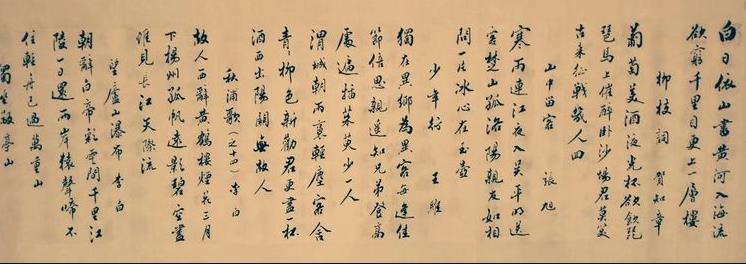 白日依山盡黄河入海流
欲窮千里目更上一層樓
柳枝詞 賀知章
葡萄美酒夜光杯欲飲琵
琶馬上催醉卧沙場君莫笑
古来征戰幾人回
山中留客 張旭
寒雨連江夜入吴平明送
客楚山孤洛陽親友如相
問一片冰心在玉壺
少年行 王維
獨在異鄉為異客每逢佳
節倍思親遥知兄弟登高
處遍插茱萸少一人
渭城朝雨裛輕塵客舍
青青柳色新勸君更盡一杯
酒西出陽關無故人
秋浦歌（之十四）李白
故人西辭黄鶴樓煙花三月
下揚州孤帆遠影碧空盡
惟見長江天際流
望廬山瀑布 李白
朝辭白帝彩雲間千里江
陵一日還兩岸猿聲啼不
住輕舟已過萬重山
獨坐敬亭山